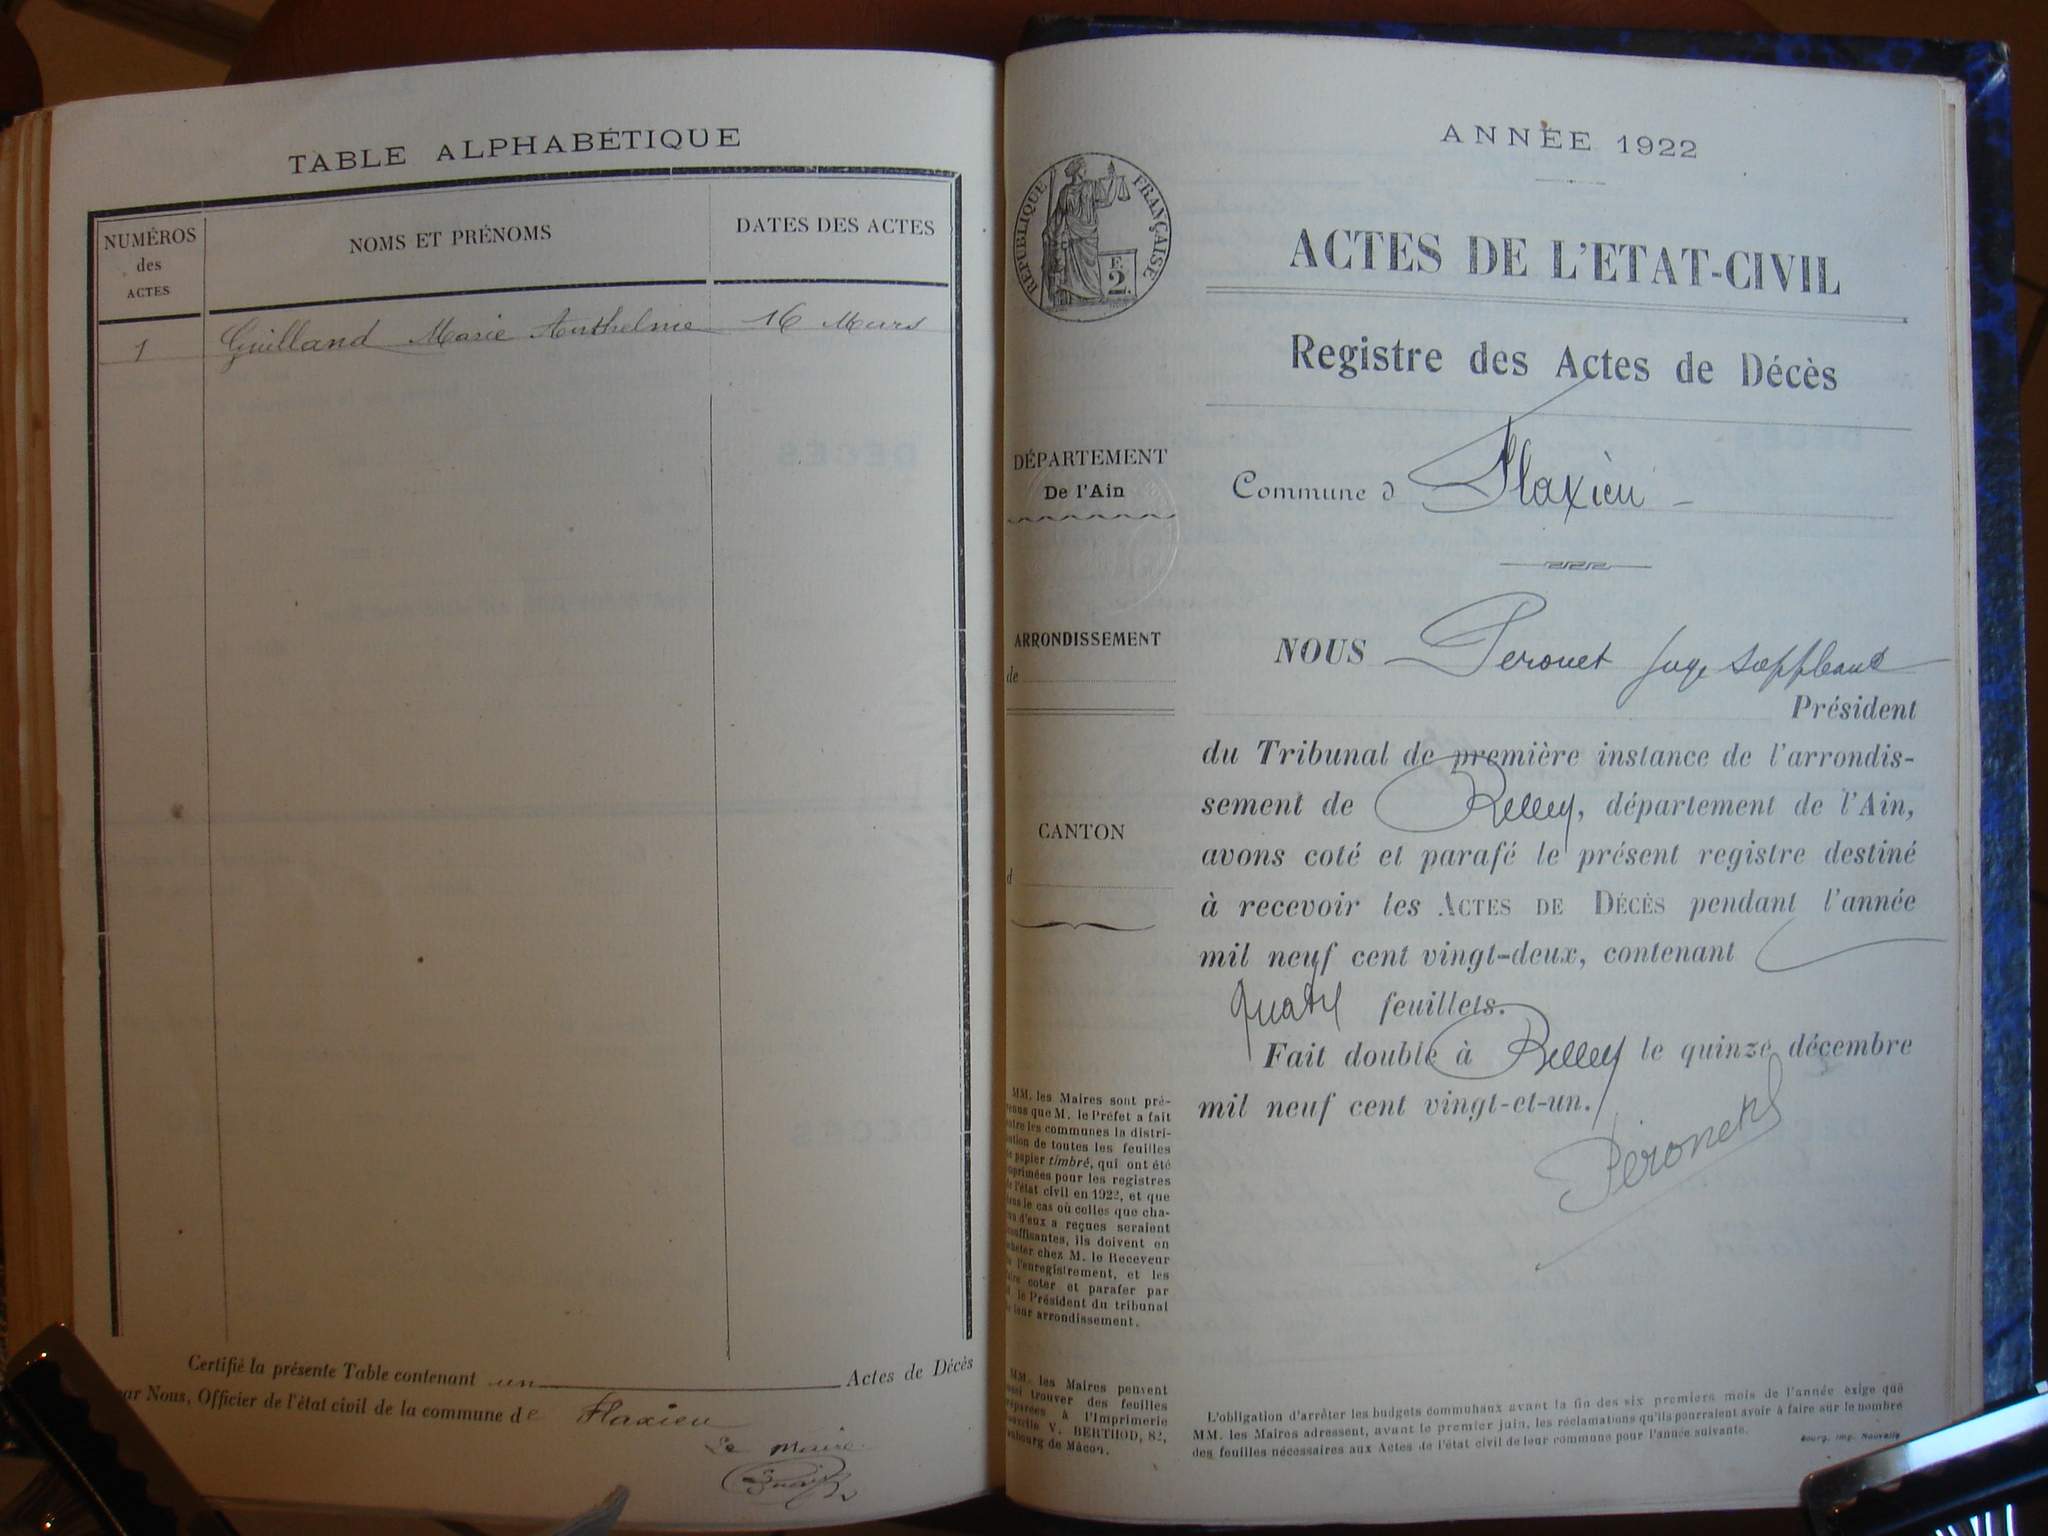 TABLE ALPHABÉTIQUE
NUMÉROS
des
ACTES
NOMS ET PRÉNOMS
DATES DES ACTES
1 Guilland Marie Anthelme 16 Mars
Certifié la présente Table contenant un Actes de Décès
par Nous, Officier de l'état civil de la commune de Flaxieu
Le Maire
ANNÉE 1922
RÉPUBLIQUE FRANÇAISE
F.
2.
ACTES DE L'ETAT-CIVIL
Registre des Actes de Décès
DÉPARTEMENT
De l'Ain
Commune d Flaxieu
ARRONDISSEMENT
de
NOUS Peronet Juge Suppléant
Président
du Tribunal de première instance de l'arrondis-
sement de Belley, département de l'Ain,
avons coté et parafé le présent registre destiné
à recevoir les ACTES DE DÉCÈS pendant l'année
mil neuf cent vingt-deux, contenant
quatre feuillets.
Fait double à Belley le quinze décembre
mil neuf cent vingt-et-un.
Péronet
CANTON
d
MM. les Maires sont pré-
venus que M. le Préfet a fait
entre les communes la distri-
bution de toutes les feuilles
de papier timbré, qui ont été
imprimées pour les registres
de l'état civil en 1922, et que
dans le cas où celles que cha-
cun d'eux a reçues seraient
insuffisantes, ils doivent en
acheter chez M. le Receveur
de l'enregistrement, et les
faire coter et parafer par
M. le Président du tribunal
de leur arrondissement.
MM. les Maires peuvent
aussi trouver des feuilles
préparées à l'Imprimerie
Nouvelle V. BERTHOD, 82,
faubourg de Mâcon.
L'obligation d'arrêter les budgets communaux avant la fin des six premiers mois de l'année exige que
MM. les Maires adressent, avant le premier juin, les réclamations qu'ils pourraient avoir à faire sur le nombre
des feuilles nécessaires aux Actes de l'état civil de leur commune pour l'année suivante.
Bourg, Imp. Nouvelle